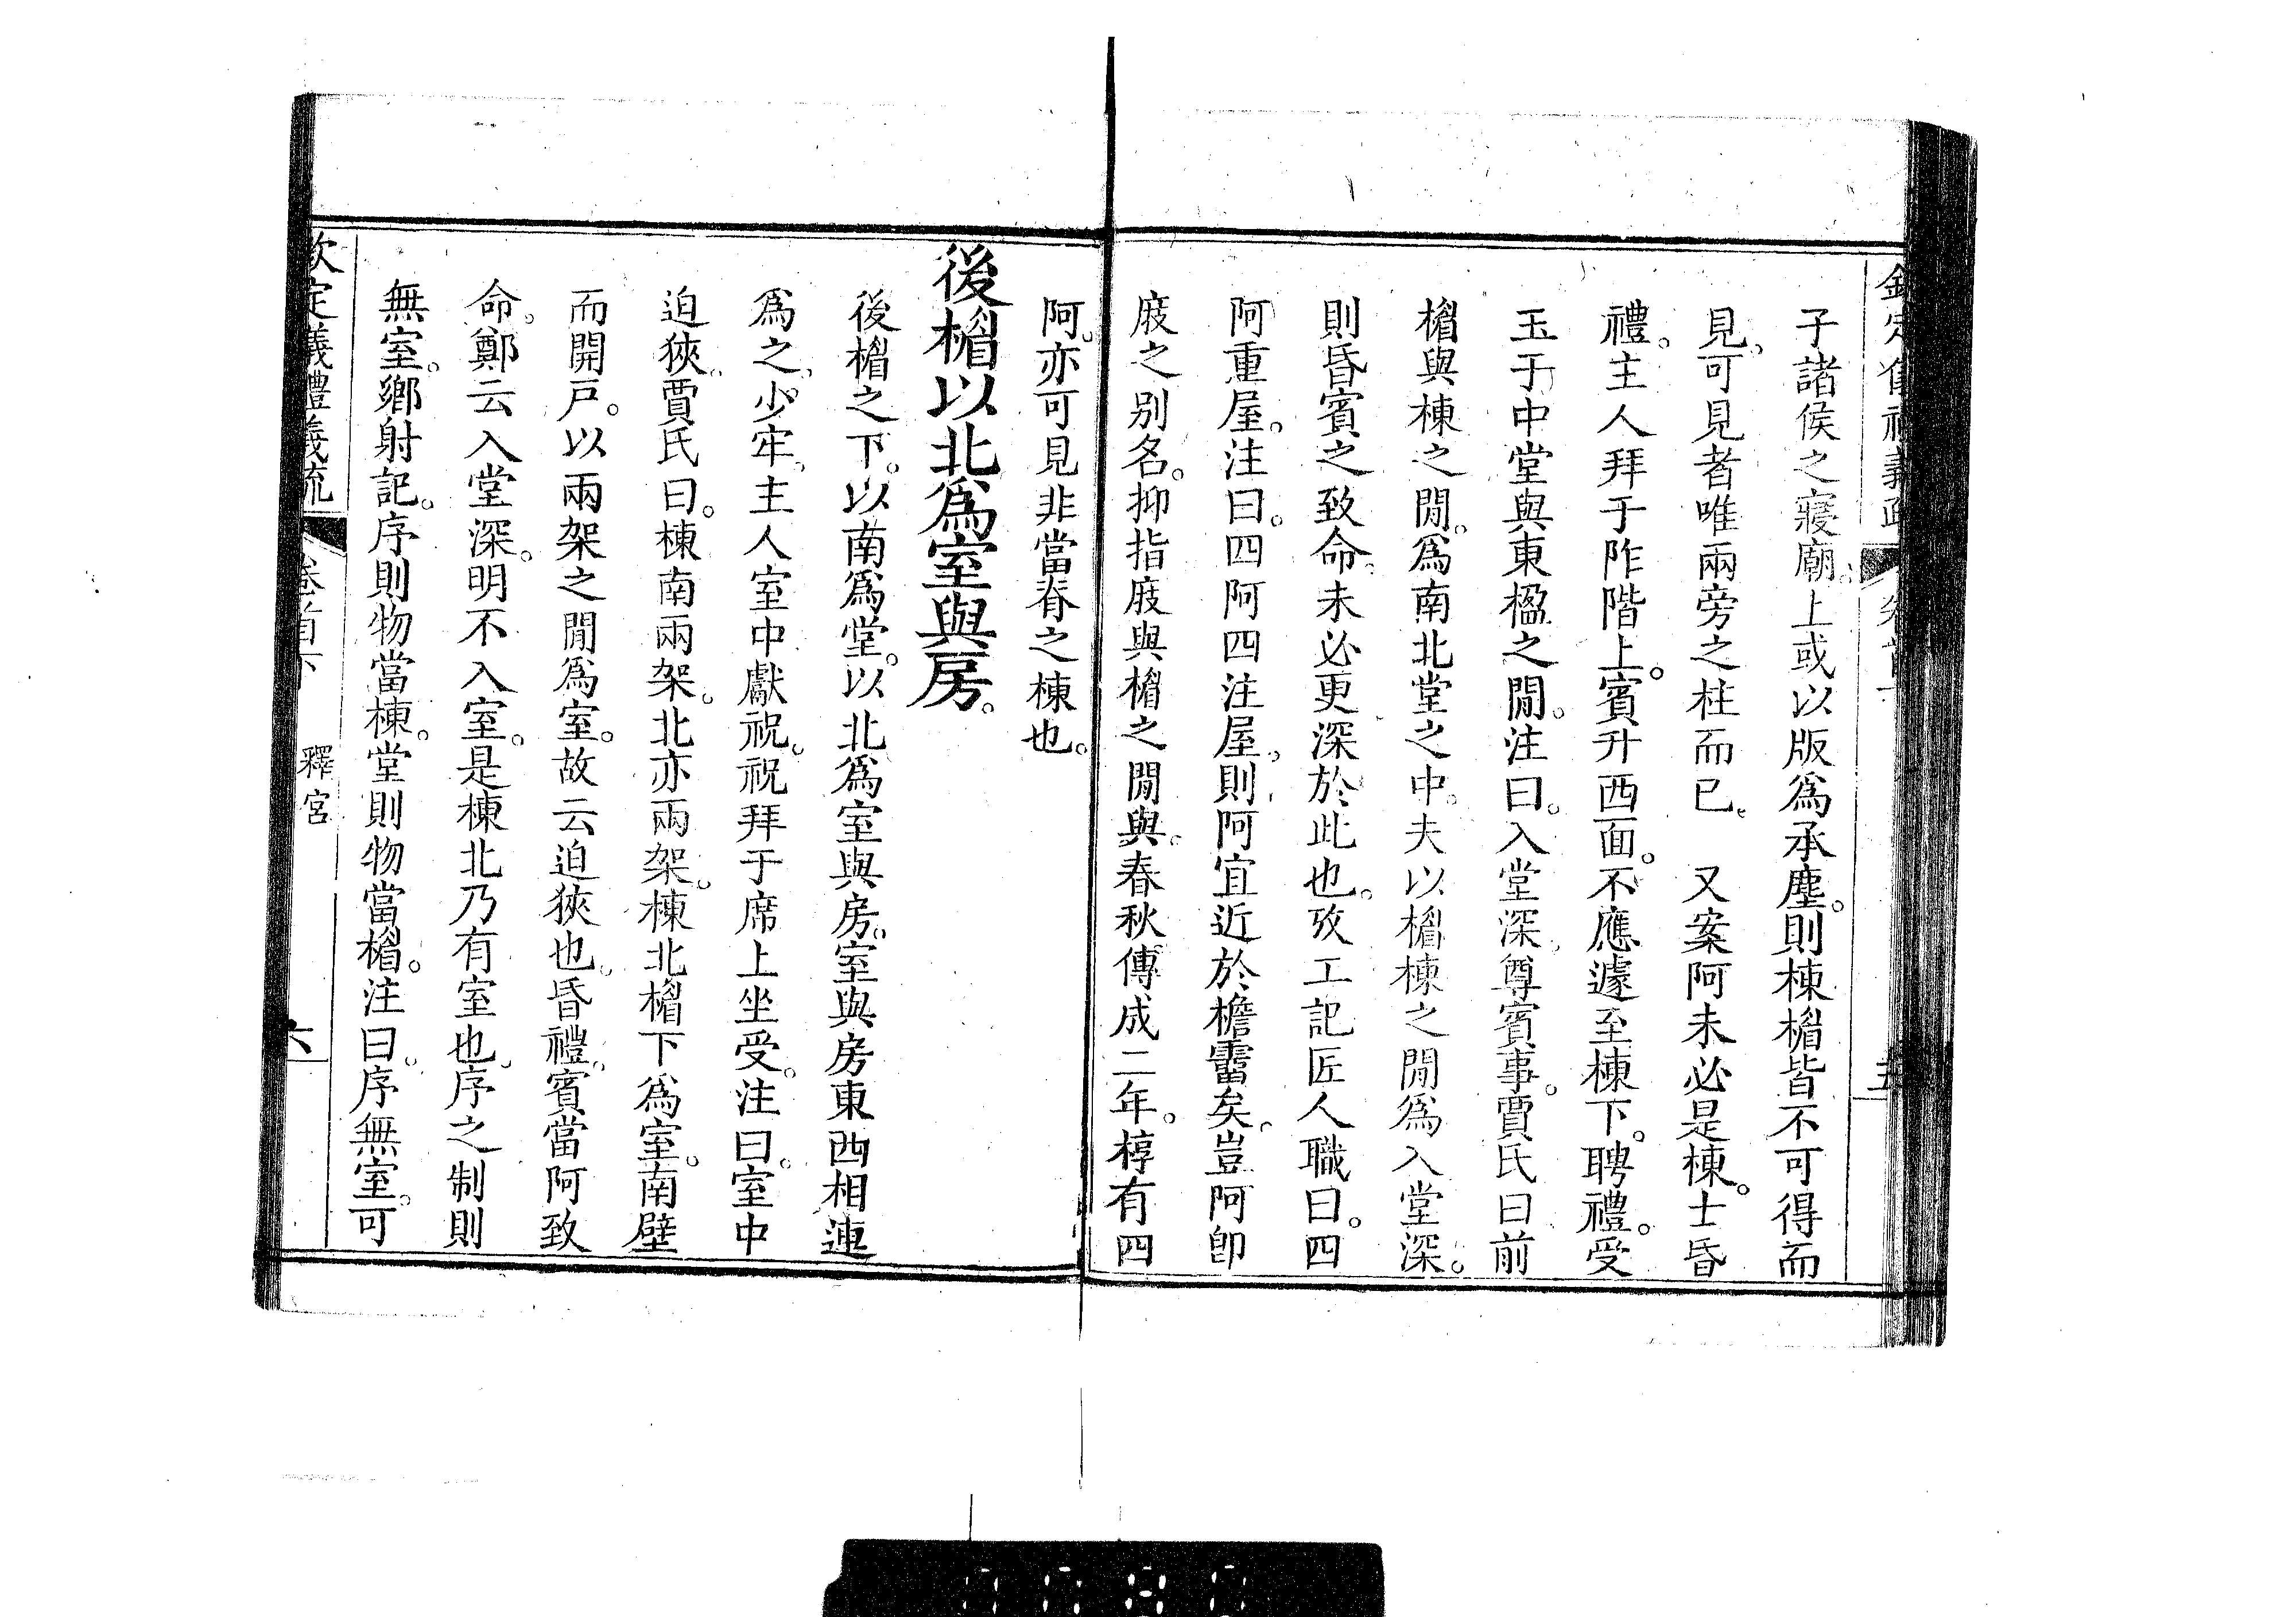 子諸侯之寢廟。上或以版爲承塵。則棟楣皆不可得而
見。可見者唯兩旁之柱而已。 又案阿未必是棟。士昏
禮。主人拜于阼階上。賓升西面。不應遽至棟下。聘禮。受
玉于中堂與東楹之閒。注曰。入堂深。尊賓事。賈氏曰前
楣與棟之閒。爲南北堂之中。夫以楣棟之閒爲入堂深。
則昏賓之致命。未必更深於此也。攷工記匠人職曰。四
阿重屋。注曰。四阿四注屋。則阿宜近於檐霤矣。豈阿卽
庪之别名。抑指庪與楣之閒與。春秋傳成二年。椁有四
阿。亦可見非當脊之棟也。
後楣以北爲室與房。
後楣之下。以南爲堂。以北爲室與房。室與房東西相連
爲之。少牢。主人室中獻祝。祝拜于席上坐受。注曰。室中
迫狹。賈氏曰。棟南兩架。北亦兩架。棟北楣下爲室。南壁
而開戸。以兩架之閒爲室。故云迫狹也。昏禮。賓當阿致
命。鄭云入堂深。明不入室。是棟北乃有室也。序之制則
無室。鄉射記。序則物當棟。堂則物當楣。注曰。序無室。可
欽定儀禮義疏 卷首下 釋宮 六